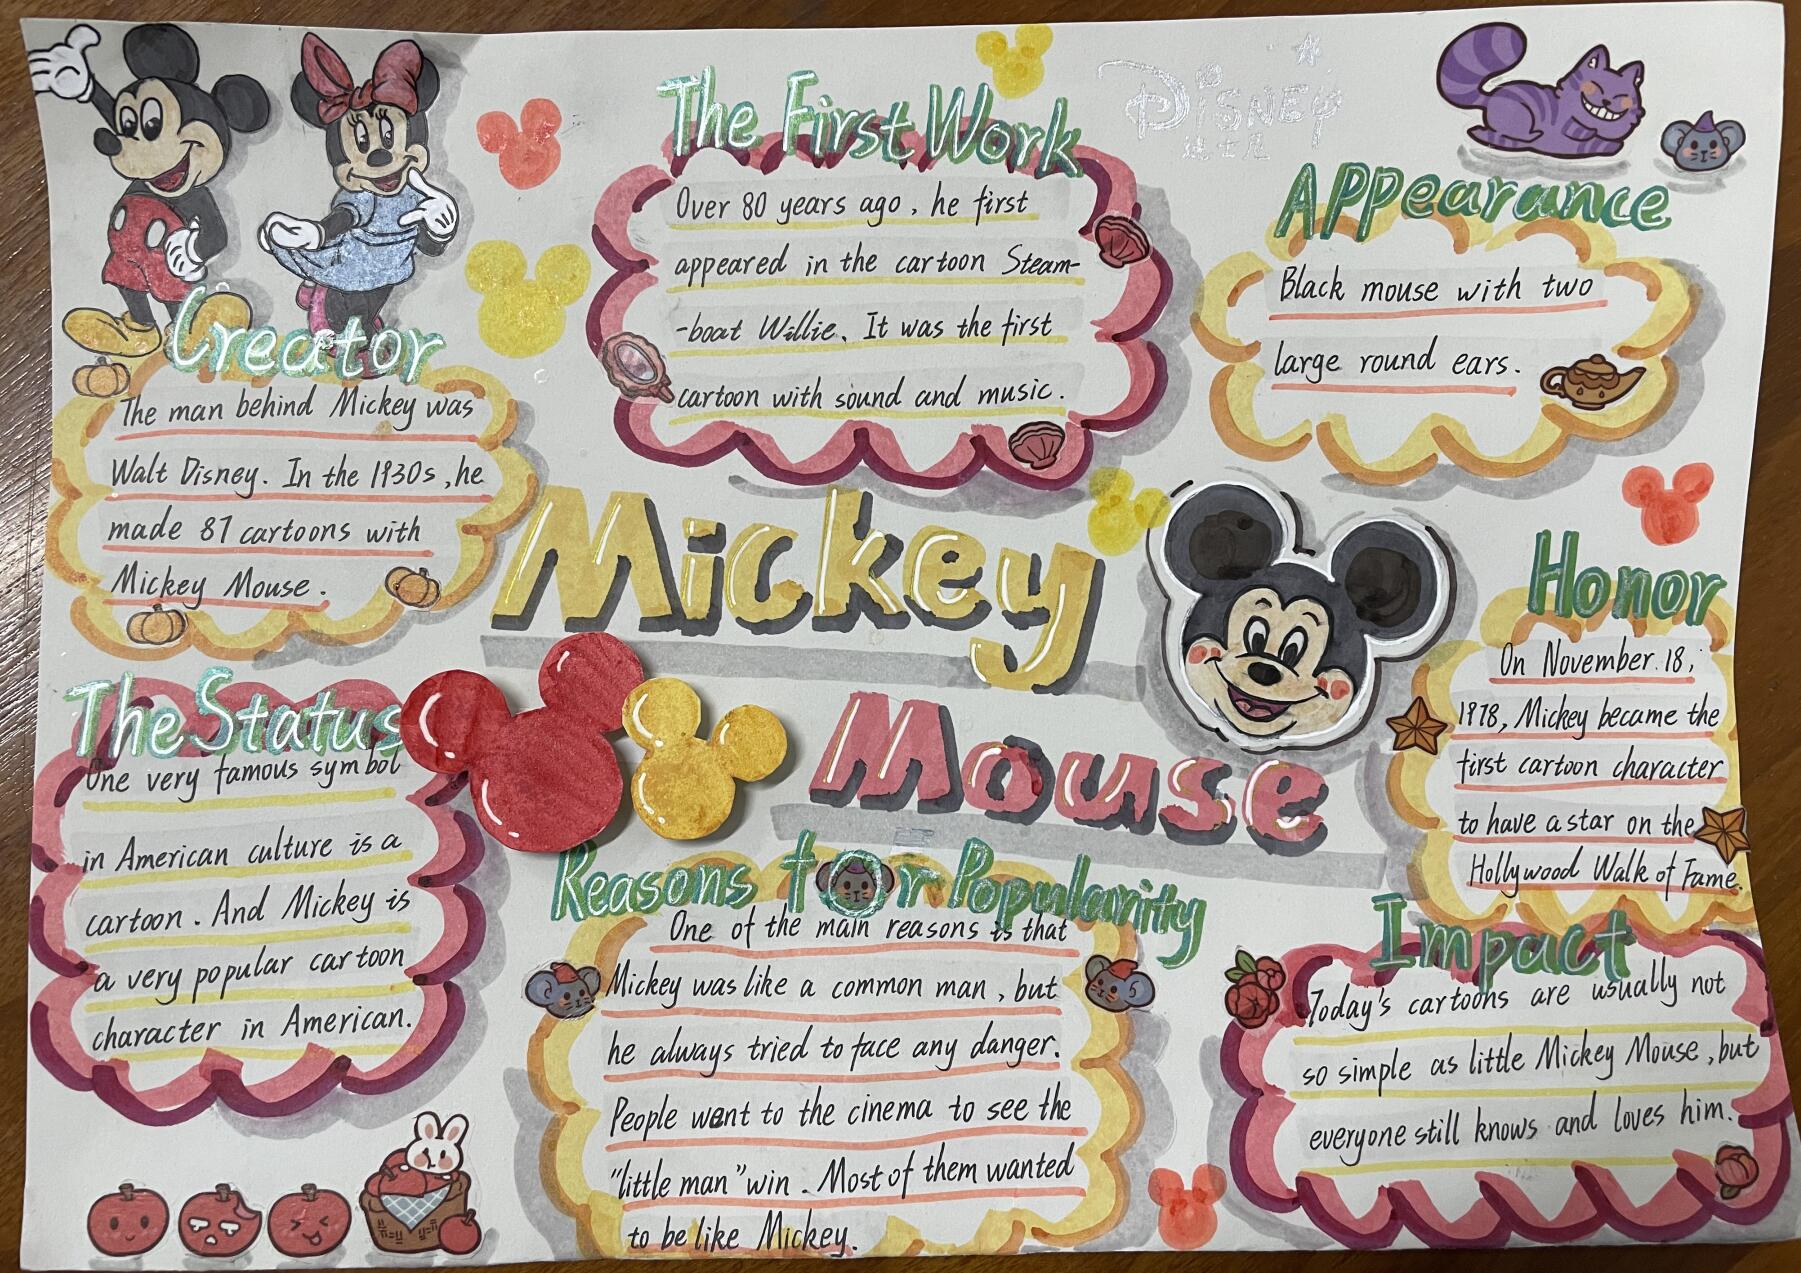 The First Work
Over 80 years ago, he first
appeared in the cartoon Steam-
-boat Willie. It was the first
cartoon with sound and music.
Disney
迪士尼
Appearance
Black mouse with two
large round ears.
Creator
The man behind Mickey was
Walt Disney. In the 1930s, he
made 87 cartoons with
Mickey Mouse.
Mickey
Mouse
Honor
On November 18,
1978, Mickey became the
first cartoon character
to have a star on the
Hollywood Walk of Fame.
The Status
One very famous symbol
in American culture is a
cartoon. And Mickey is
a very popular cartoon
character in American.
Reasons for Popularity
One of the main reasons is that
Mickey was like a common man, but
he always tried to face any danger.
People went to the cinema to see the
"little man" win. Most of them wanted
to be like Mickey.
Impact
Today's cartoons are usually not
so simple as little Mickey Mouse, but
everyone still knows and loves him.